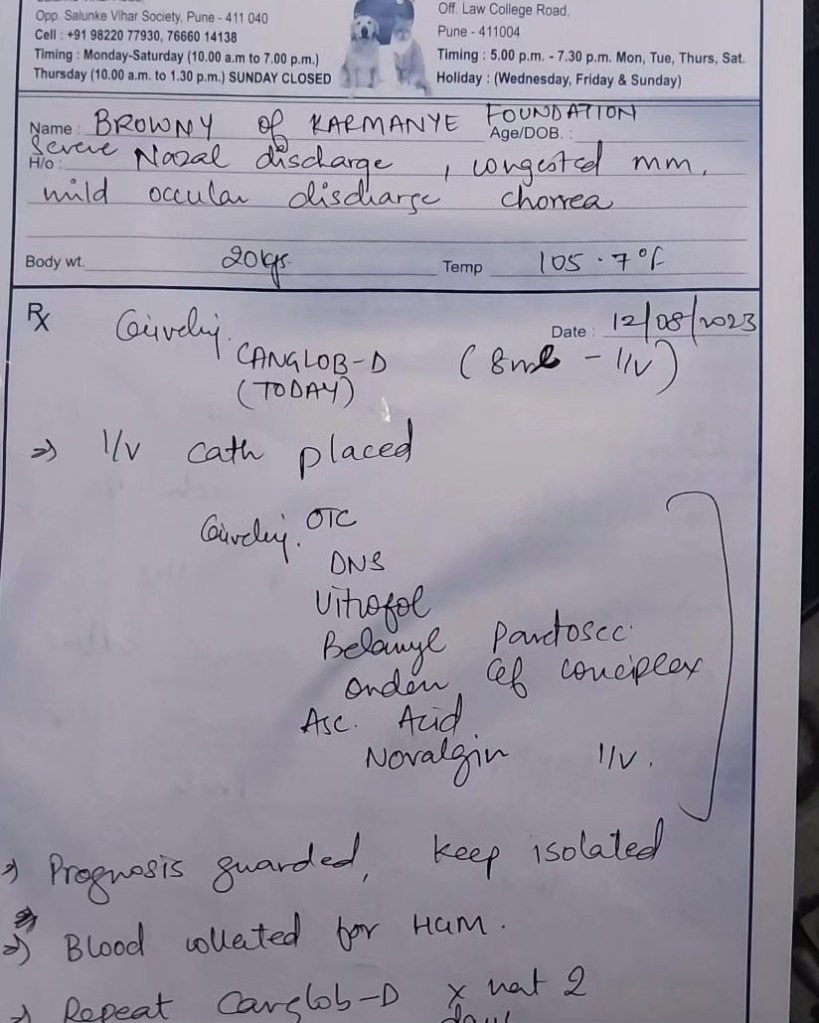 Opp. Salunke Vihar Society, Pune - 411 040
Cell : +91 98220 77930, 76660 14138
Timing : Monday-Saturday (10.00 a.m to 7.00 p.m.)
Thursday (10.00 a.m. to 1.30 p.m.) SUNDAY CLOSED
Off. Law College Road,
Pune - 411004
Timing : 5.00 p.m. - 7.30 p.m. Mon, Tue, Thurs, Sat.
Holiday : (Wednesday, Friday & Sunday)
Name : BROWNY of KARMANYE FOUNDATION
Age/DOB. :
H/o : Severe Nazal discharge , congested mm,
mild occular discharge chorrea
Body wt. 20kgs. Temp 105.7°F
Rx
Date : 12/08/2023
CANGLOB-D (8ml - I/V)
(TODAY)
⇒ I/V cath placed
OTC
DNS
Vitrofol
Belamyl Pantosec
Onden Cef
Asc. Acid
Novalgin I/V.
⇒ Prognosis guarded, keep isolated
⇒ Blood collected for HGM.
⇒ Repeat Canglob-D x next 2
days